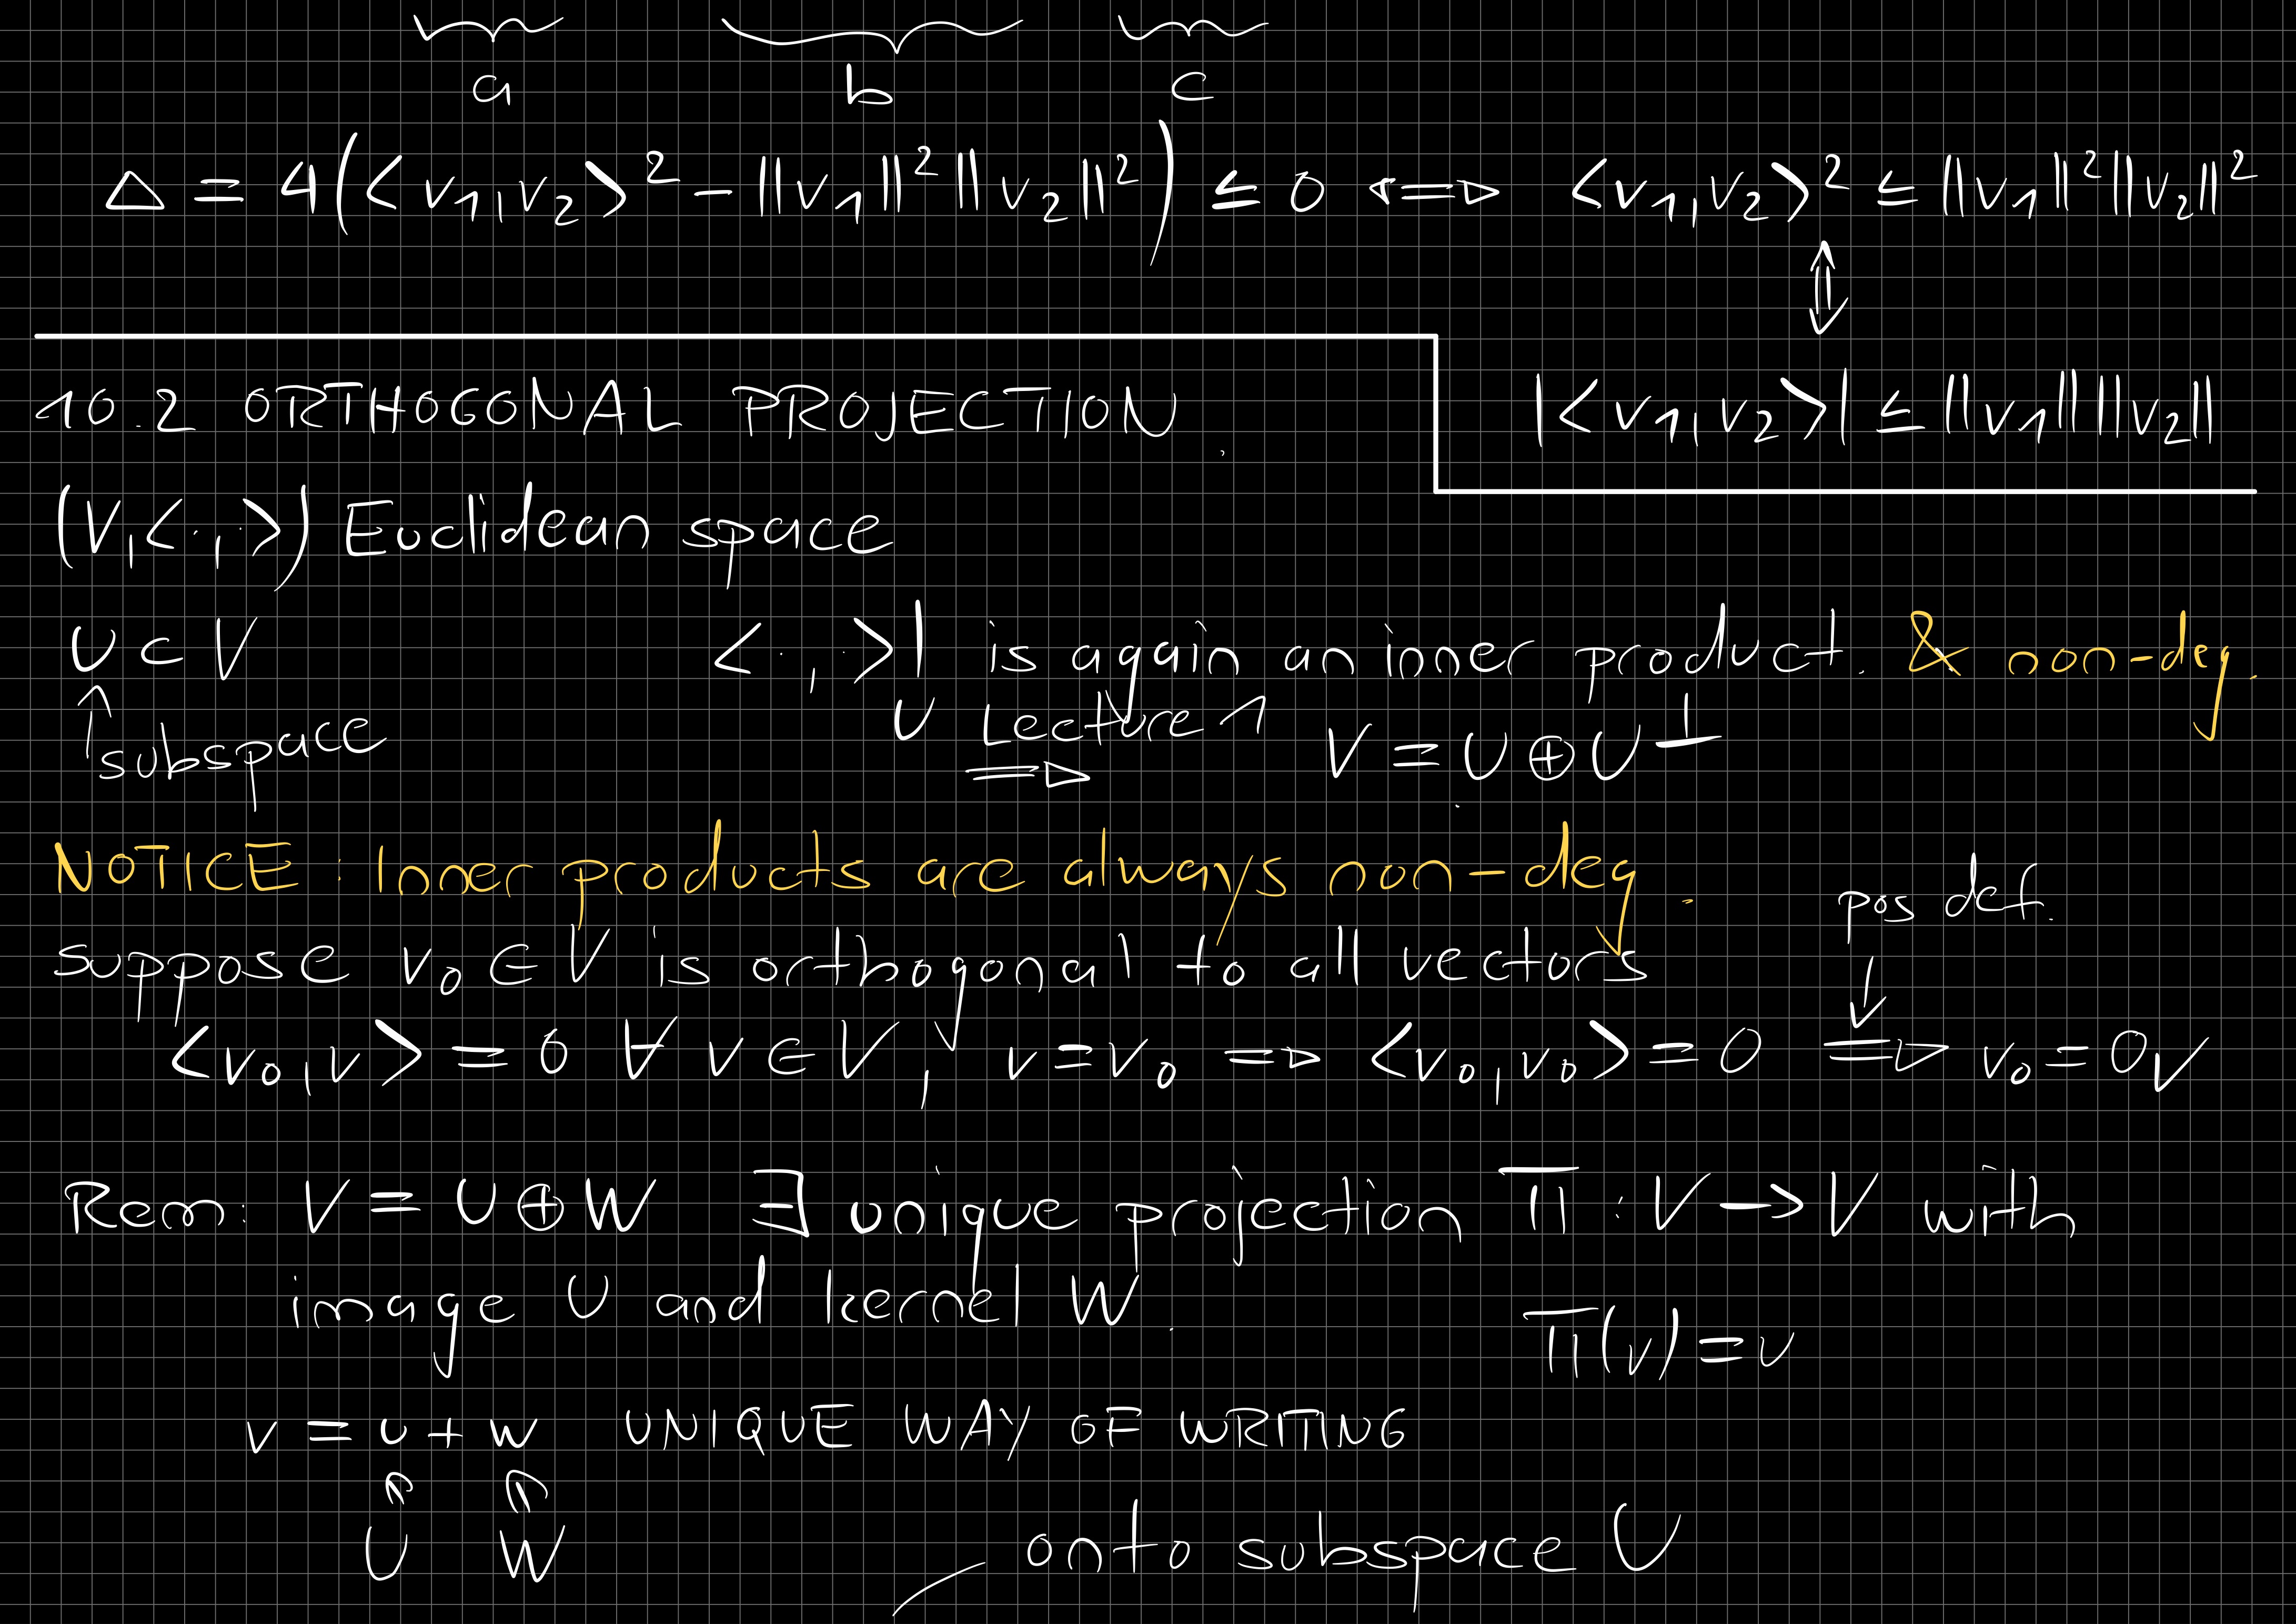 a b c
Δ = 4(<v₁,v₂>² - ||v₁||² ||v₂||²) ≤ 0 ⇐⇒ <v₁,v₂>² ≤ ||v₁||² ||v₂||²
⇕
10.2 ORTHOGONAL PROJECTION.
|<v₁,v₂>| ≤ ||v₁|| ||v₂||
(V,<·,·>) Euclidean space
U ⊂ V <·,·>|U is again an inner product. & non-deg.
↑ subspace
Lecture 1 ⇒ V = U ⊕ U^⊥
NOTICE: Inner products are always non-deg.
suppose v₀ ∈ V is orthogonal to all vectors
pos def. ↓
<v₀,v> = 0 ∀ v ∈ V, v = v₀ ⇒ <v₀,v₀> = 0 ⇒ v₀ = 0_V
Rem: V = U ⊕ W ∃ unique projection Π: V → V with
image U and kernel W.
Π(v) = u
v = u + w UNIQUE WAY OF WRITING
↑ ↑
U W
onto subspace U